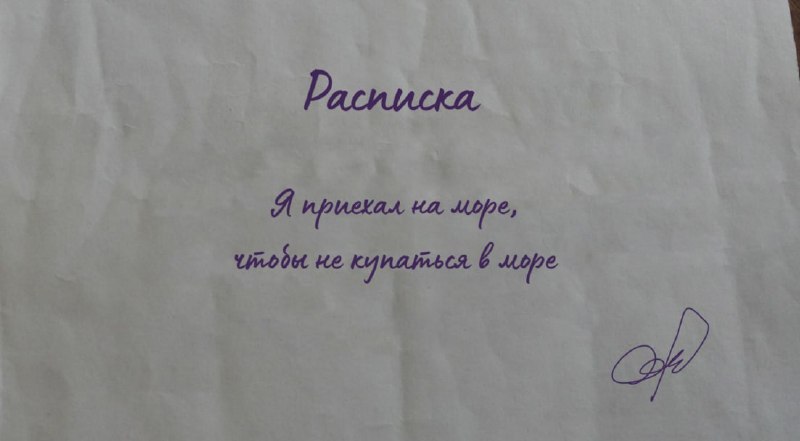 Расписка
Я приехал на море,
чтобы не купаться в море